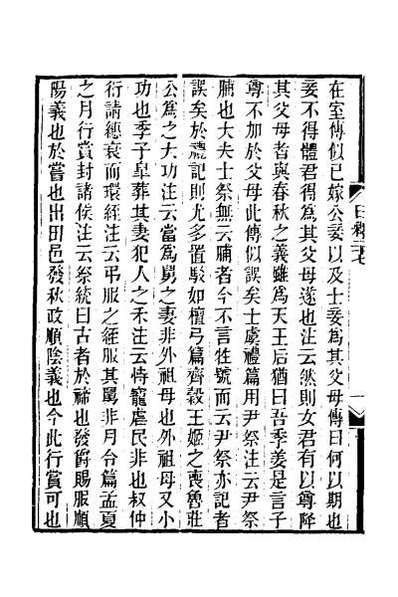 在室傳似已嫁公妾以及士妾為其父母傳曰何以期也
妾不得體君得為其父母遂也注云然則女君有以尊降
其父母者與春秋之義雖為天王后猶曰吾季姜是言子
尊不加於父母此傳似誤矣士虞禮篇用尹祭注云尹祭
脯也大夫士祭無云脯者今不言牲號而云尹祭亦記者
誤矣於禮記則尤多置駁如檀弓篇齊穀王姬之喪魯莊
公為之大功注云當為舅之妻非外祖母也外祖母又小
功也季子皐葬其妻犯人之禾注云恃寵虐民非也叔仲
衍請繐衰而環絰注云弔服之絰服其舅非月令篇孟夏
之月行賞封諸侯注云祭統曰古者於禘也發爵賜服順
陽義也於嘗也出田邑發秋政順陰義也今此行賞可也